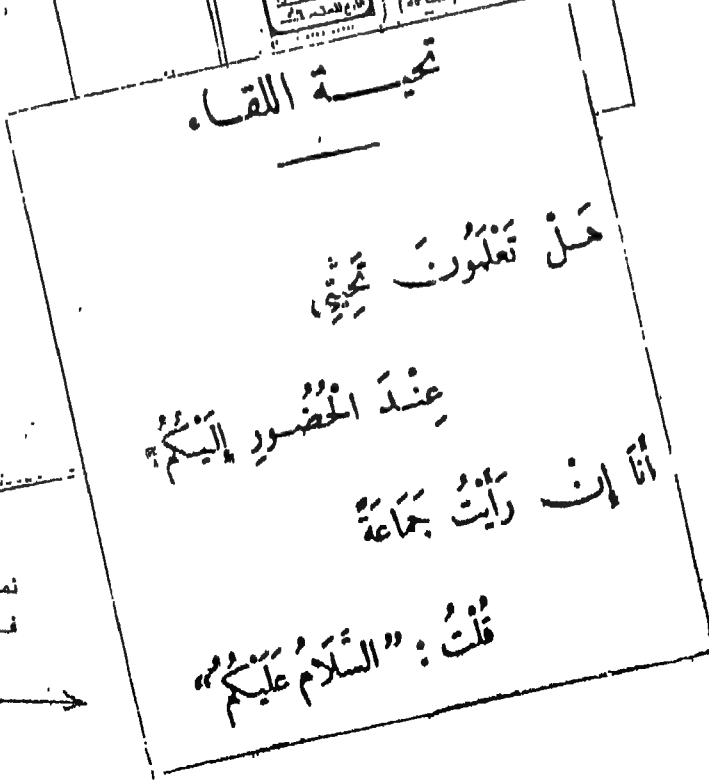 تحيـــة اللقـاء
هَـلْ تَعْلَمُونَ تَحِيَّتِي
عِنْـدَ الْحُضُـورِ إِلَيْـكُمُ؟
أَنَا إِنْ رَأَيْتُ جَمَاعَةً
قُلْتُ : "السَّلَامُ عَلَيْكُمُ"